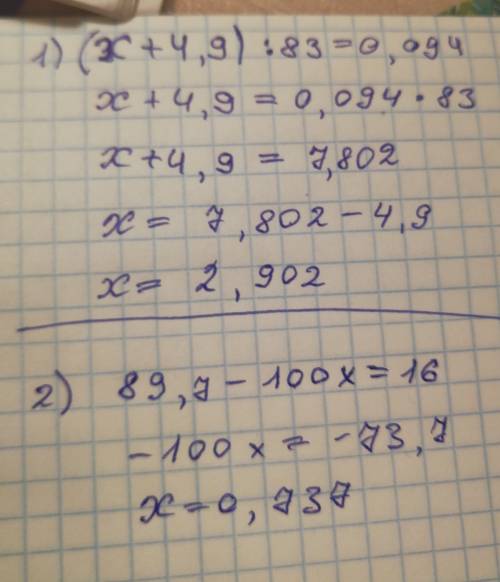 1) (x + 4,9) : 83 = 0,094
x + 4,9 = 0,094 · 83
x + 4,9 = 7,802
x = 7,802 - 4,9
x = 2,902
2) 89,7 - 100x = 16
-100x = -73,7
x = 0,737